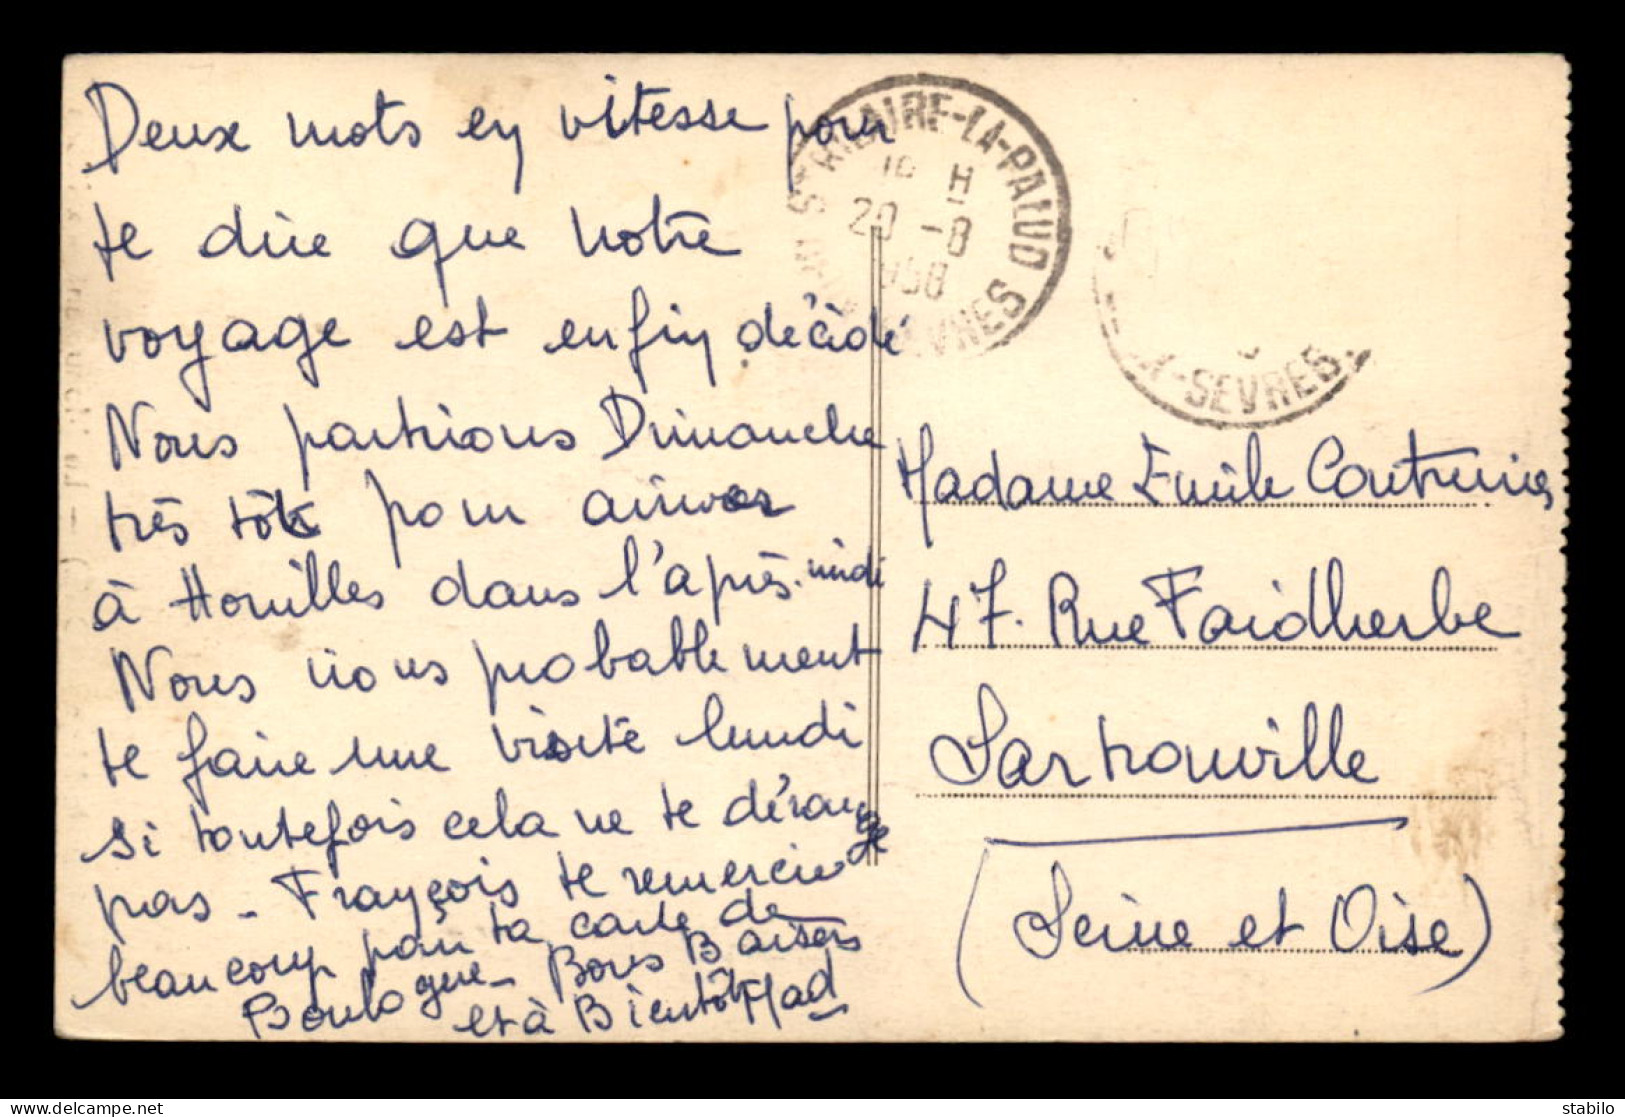 Deux mots en vitesse pour
te dire que notre
voyage est enfin décidé
Nous partirons Dimanche
très tôt pour arriver
à Houilles dans l'après-midi
Nous irons probablement
te faire une visite lundi
si toutefois cela ne te dérange
pas - François te remercie
beaucoup pour ta carte de
Boulogne - Bons Baisers
et à Bientôt Mad
ST HILAIRE-LA-PALUD
H
20 -8
1958
SEVRES
X-SEVRES
Madame Emile
47. Rue Faidherbe
Sartrouville
(Seine et Oise)
stabilo